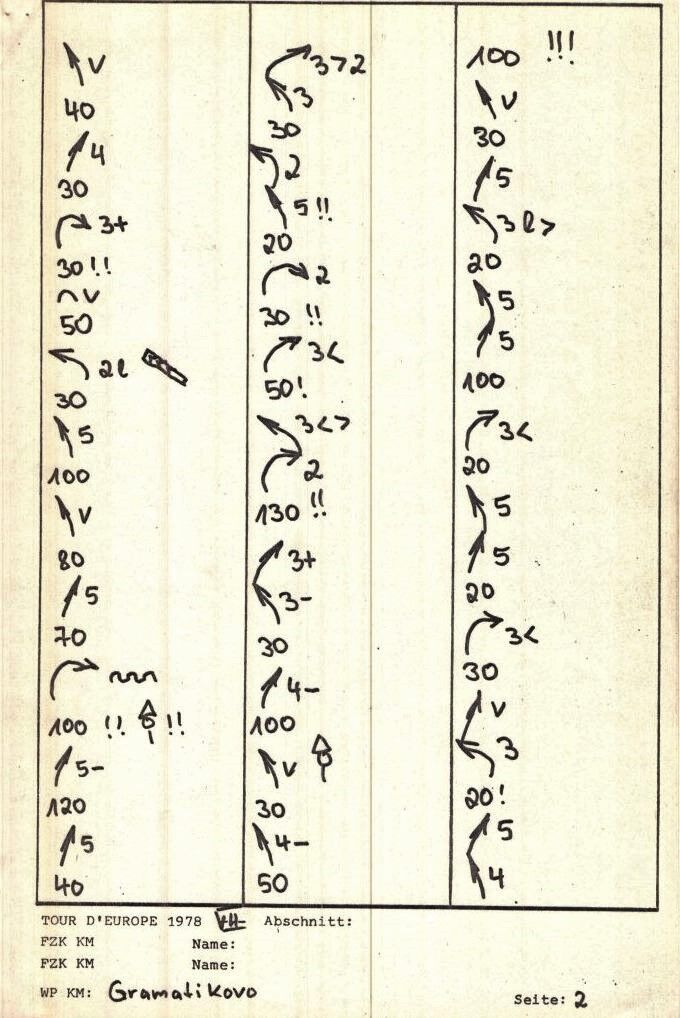 V
40
4
30
3+
30!!
V
50
2l
30
5
100
V
80
5
70
100 !! !!
5-
120
5
40
3>2
3
30
2
5!!
20
2
30 !!
3<
50!
3<>
2
130 !!
3+
3-
30
4-
100
V
30
4-
50
100 !!!
V
30
5
3l>
20
5
5
100
3<
20
5
5
20
3<
30
V
3
20!
5
4
TOUR D'EUROPE 1978 Abschnitt:
FZK KM Name:
FZK KM Name:
WP KM: Gramatikovo
Seite: 2